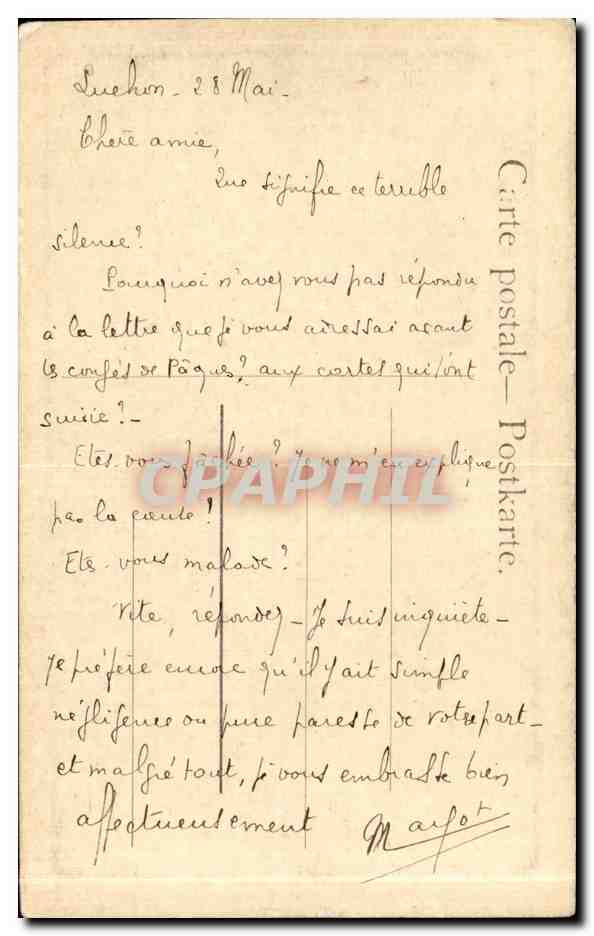 Luchon - 28 Mai -
Chère amie,
Que signifie ce terrible
silence?
Pourquoi n'avez vous pas répondu
à la lettre que je vous adressai avant
les congés de Pâques? aux cartes qui l'ont
suivie? -
Etes-vous fâchée? Je ne m'en explique
pas la cause!
Etes-vous malade?
Vite, répondez - Je suis inquiète -
Je préfère encore qu'il y ait simple
négligence ou pure paresse de votre part -
et malgré tout, je vous embrasse bien
affectueusement Margot
Carte postale — Postkarte.
CPAPHIL